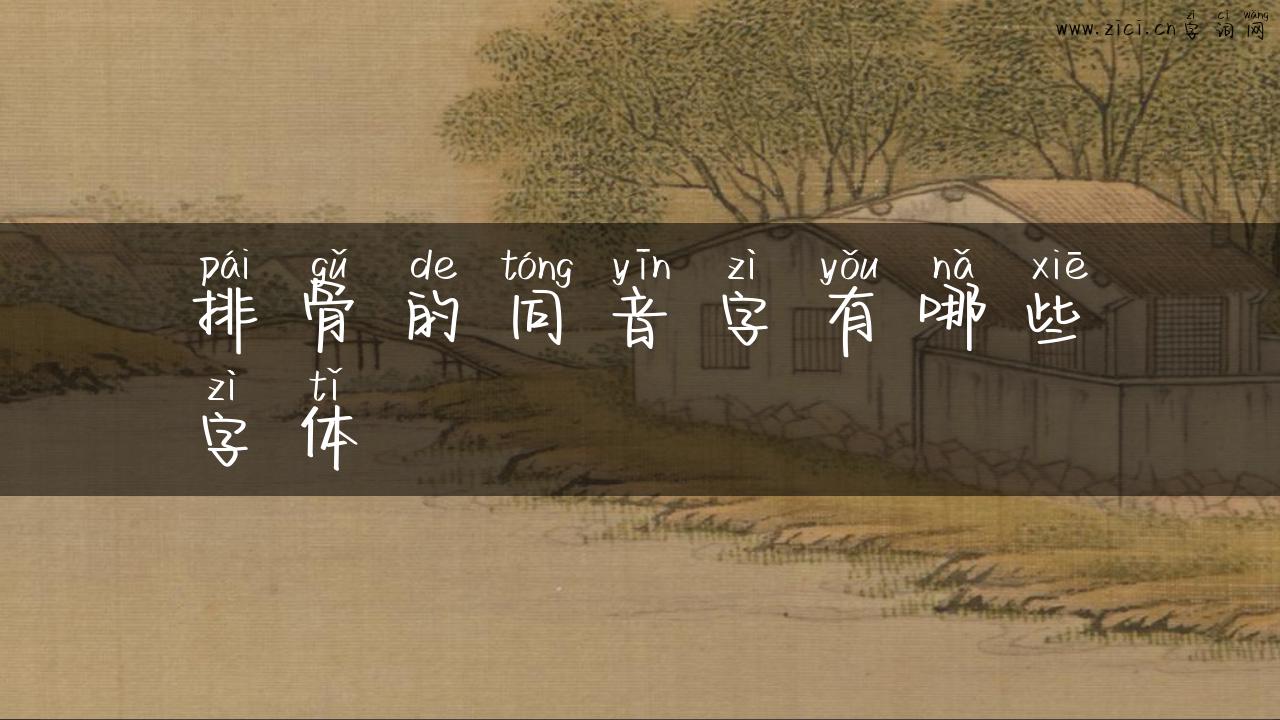 zì cí wǎng
www.zici.cn字词网
pái gǔ de tóng yīn zì yǒu nǎ xiē
排骨的同音字有哪些
zì tǐ
字体